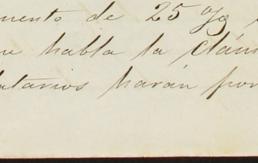 mento de 25 %
habla la cláu
tatarios harán por